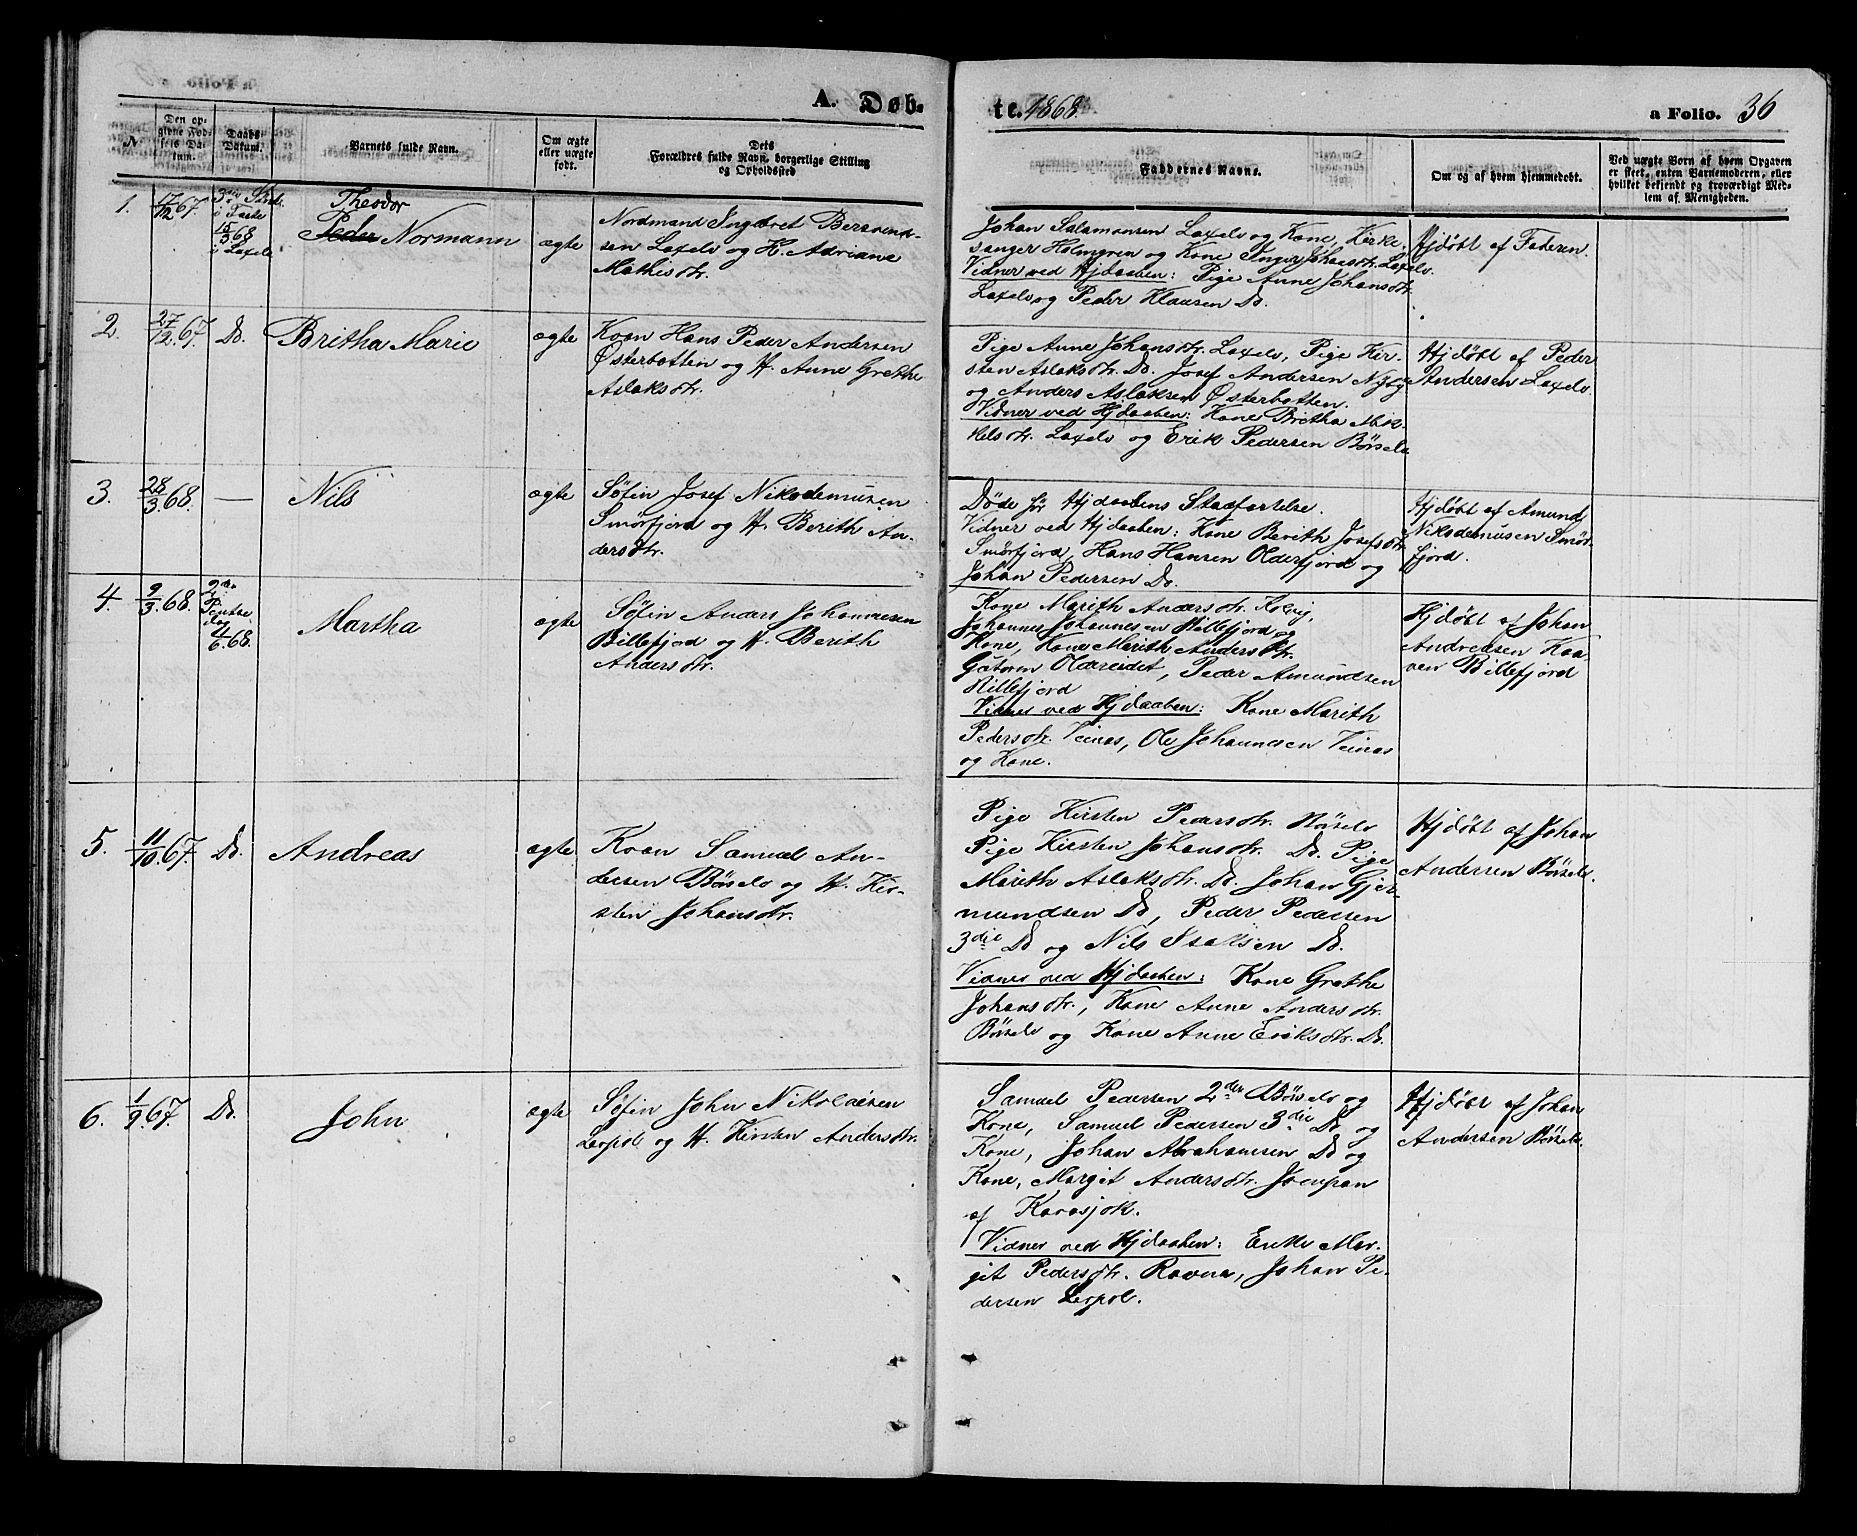 A. Døb-
te. 1868.
a Folio. 36
No.
Den op-
givne Fød-
sels Da-
tum.
Daabs
Datum.
Barnets fulde Navn.
Om ægte
eller uægte
født.
Dets
Forældres fulde Navn, borgerlige Stilling
og Opholdssted
Faddernes Navne.
Om og af hvem hjemmedøbt.
Ved uægte Børn af hvem Opgaven
er skeet, enten Barnemoderen, eller
hvilket bekjendt og troværdigt Med-
lem af Menigheden.
1.
17/12 67
3die S.
i Faste
15/3 68
i Laxelv
Theodor
Peder Normann
ægte
Nordmand Ingebret Berntsen
Laxelv og H. Adriane
Mathisdtr.
Johan Salamonsen Laxelv og Kone, Kirke-
sanger Holmgren og Kone Inger Johansdtr. Laxelv.
Vidner ved Hjdaaben: Pige Anne Johansdtr.
Laxelv og Peder Klausen Do.
Hjdøbt af Faderen.
2.
27/12 67.
Do.
Britha Marie
ægte
Kvæn Hans Peder Andersen
Østerbotten og H. Anne Grethe
Aslaksdtr.
Pige Anne Johansdtr. Laxelv, Pige Kir-
sten Aslaksdtr. Do. Josef Andersen Nyby
og Anders Aslaksen Østerbotten.
Vidner ved Hjdaaben: Kone Britha Mik-
kelsdtr. Laxelv og Erik Pedersen Børselv
Hjdøbt af Peder
Andersen Laxelv.
3.
28/3 68.
—
Nils
ægte
Søfin Josef Nikodemusen
Smørfjord og H. Berith An-
dersdtr.
Døde før Hjdaabens Stadfæstelse.
Vidner ved Hjdaaben: Kone Berith Josefsdtr.
Smørfjord, Hans Hansen Olderfjord og
Johan Pedersen Do.
Hjdøbt af Amund
Nikodemusen Smør-
fjord.
4.
9/3 68.
2den
Pintse
dag
4/6 68.
Martha
ægte
Søfin Anders Johannesen
Billefjord og H. Berith
Andersdtr.
Kone Marith Andersdtr. Kolvig,
Johannes Johannesen Billefjord og
Kone, Kone Marith Andersdtr.
Guttorm Oldereidet, Peder Amundsen
Billefjord
Vidner ved Hjdaaben: Kone Marith
Pedersdtr. Veinæs, Ole Johannesen Veinæs
og Kone.
Hjdøbt af Johan
Andreasen Kaa-
ven Billefjord
5.
11/10 67.
Do.
Andreas
ægte
Kvæn Samuel An-
dersen Børselv og H. Kir-
sten Johansdtr.
Pige Kirsten Pedersdtr. Børselv
Pige Kirsten Johansdtr. Do. Pige
Marith Aslaksdtr. Do. Johan Gjer-
mundsen Do, Peder Pedersen
3die Do og Nils Isaksen Do.
Vidner ved Hjdaaben: Kone Grethe
Johansdtr., Kone Anne Andersdtr.
Børselv og Kone Anne Eriksdtr. Do.
Hjdøbt af Johan
Andersen Børselv.
6.
1/9 67.
Do.
John
ægte
Søfin John Nikolaisen
Leirpol og H. Kirsten Andersdtr.
Samuel Pedersen 2den Børselv og
Kone, Samuel Pedersen 3die Do og
Kone, Johan Abrahamsen Do og
Kone, Margit Andersdtr.
af Karasjok.
Vidner ved Hjdaaben: Enke Mar-
git Pedersdtr. Ravna, Johan Pe-
dersen Leirpol.
Hjdøbt af Johan
Andersen Børselv.